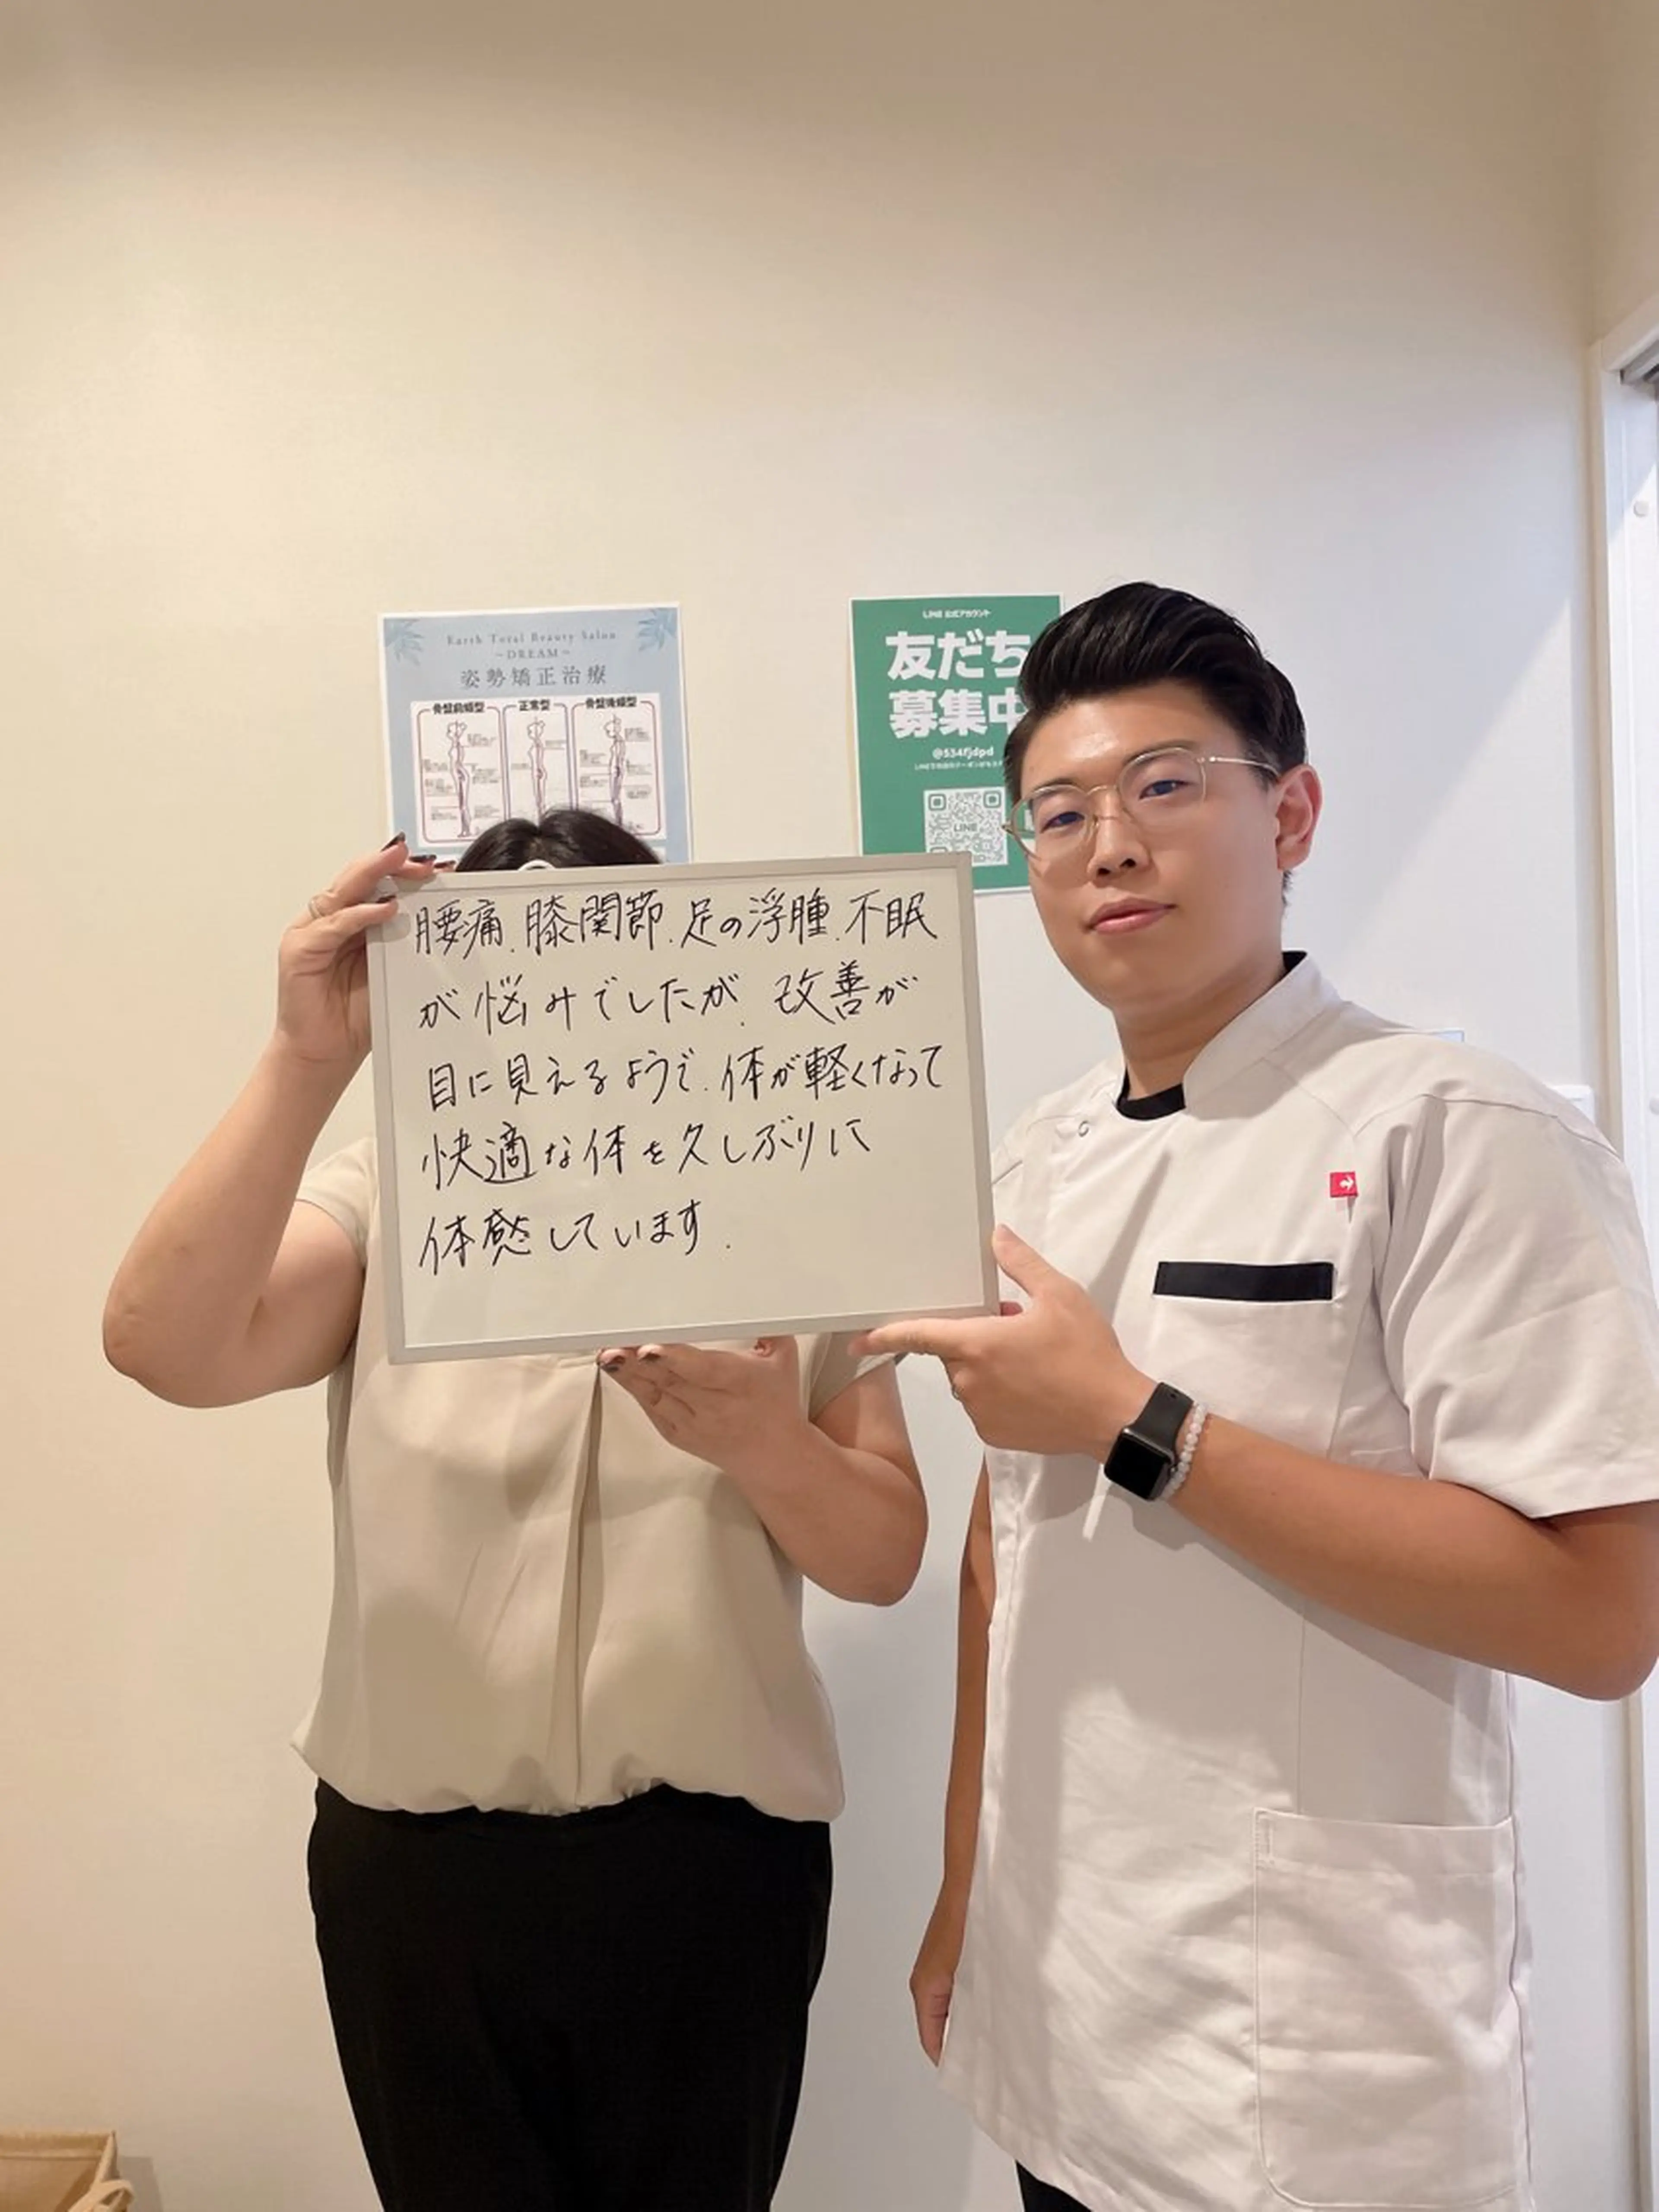 Earth Total Beauty Salon
~DREAM~
姿勢矯正治療
骨盤前傾型
正常型
骨盤後傾型
LINE 公式アカウント
友だち
募集中
@534fjdpd
LINE
腰痛.膝関節.足の浮腫.不眠
が悩みでしたが.改善が
目に見えるようで.体が軽くなって
快適な体を久しぶりに
体感しています.